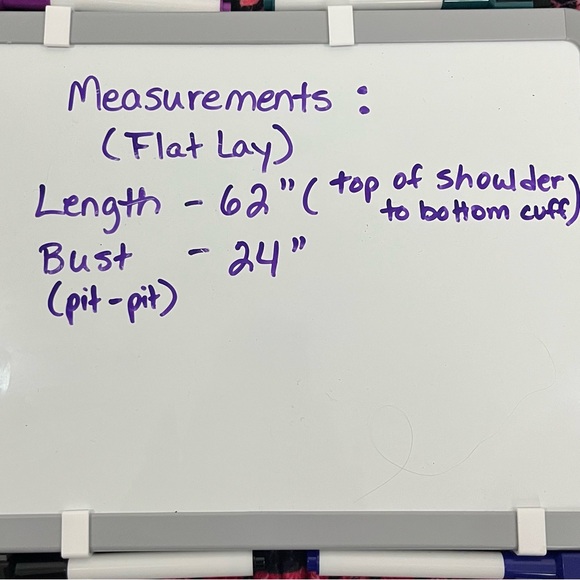 Measurements :
(Flat Lay)
Length - 62" (top of shoulder
to bottom cuff)
Bust - 24"
(pit-pit)